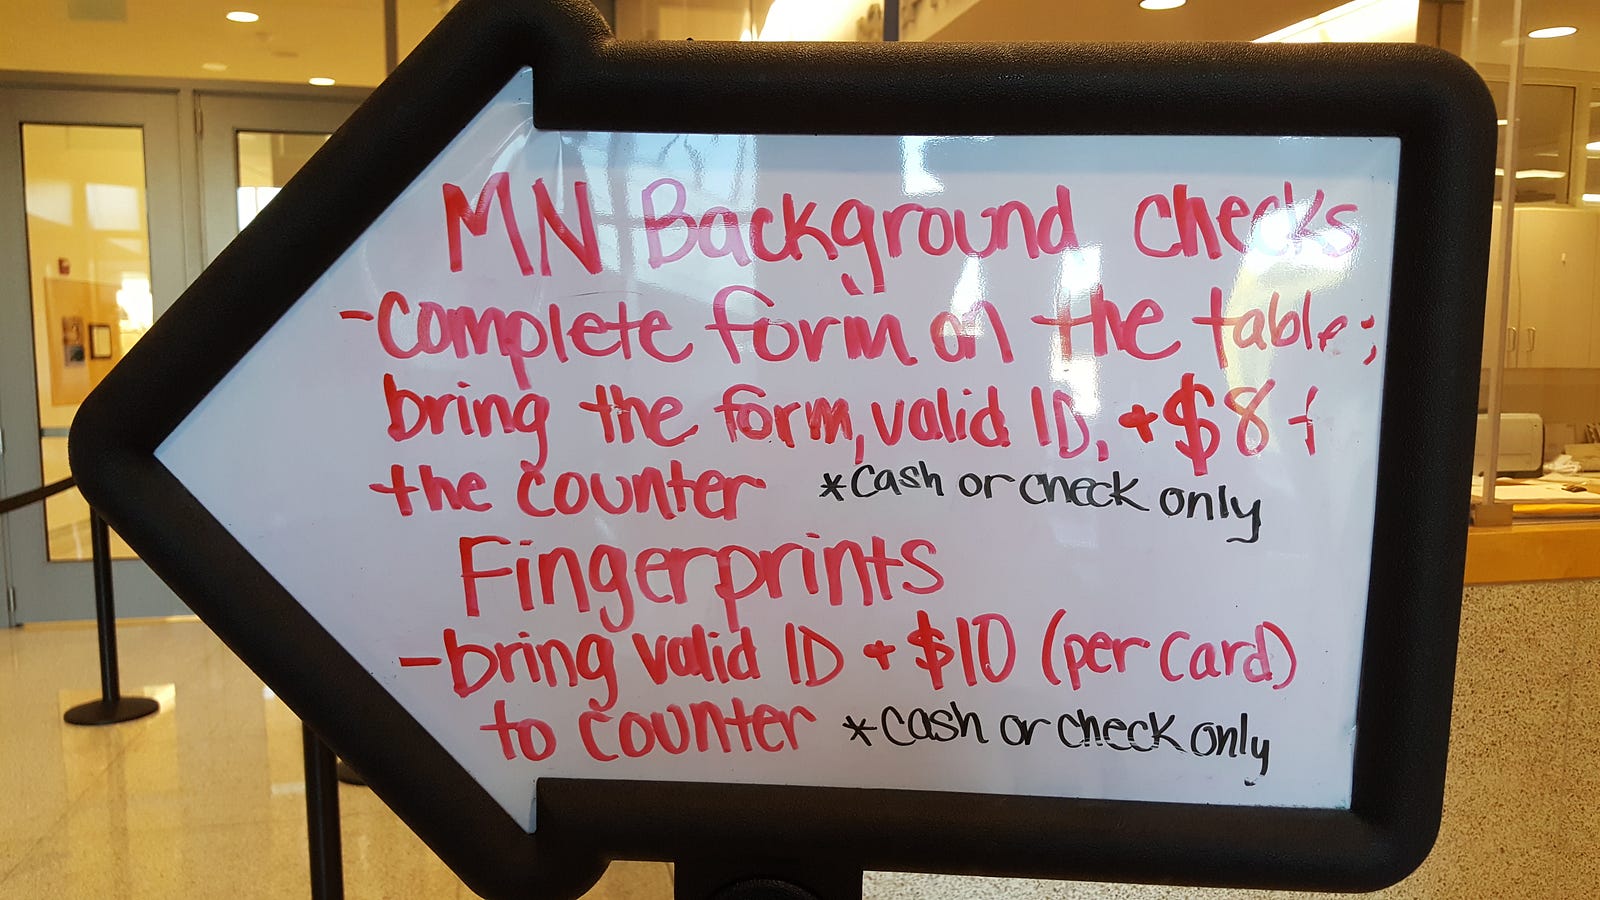 MN Background Checks
-Complete form on the table;
bring the form, valid ID, + $8
the counter *cash or check only
Fingerprints
-bring valid ID + $10 (per card)
to counter *cash or check only